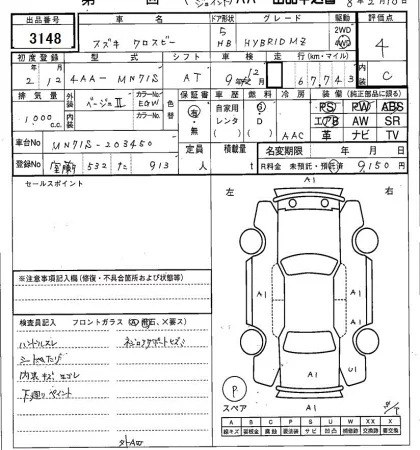 出品番号 車名 ドア形状 グレード 駆動 評価点
3148 スズキ クロスビー 5 HB HYBRID MZ 2WD 4WD 4
初度登録 型式 シフト 車検 走行(km・マイル) 内装
2年12月 4AA-MN71S AT 9年12月 67,743 C
排気量 外装 色 カラーNo. 色替 保証書 車歴 燃料 冷房 装備(純正部品に限る)
1,000 c.c. ベージュⅡ 有・無 自家用 レンタ G D AAC PS PW ABS
内装 色 カラーNo. エアB AW SR
革 ナビ TV
車台No MN71S-203450 定員 積載量 名変期限 年 月 日
登録No 532 た 913 人 t R料金 未預託・預託済 9,150円
セールスポイント 左 右
A1
※注意事項記入欄(修復・不具合箇所および状態等)
A1 A1
検査員記入 フロントガラス(A、飛石、×要ス)
ハンドルスレ
シート
内装キズ ヨゴレ
下廻りペイント
A1 U1
P
スペア A1
外AW
A B C P S U W X XX
線キズ 要板金 腐蝕 要塗装 サビ 凹凸 補修跡 要交換 交換